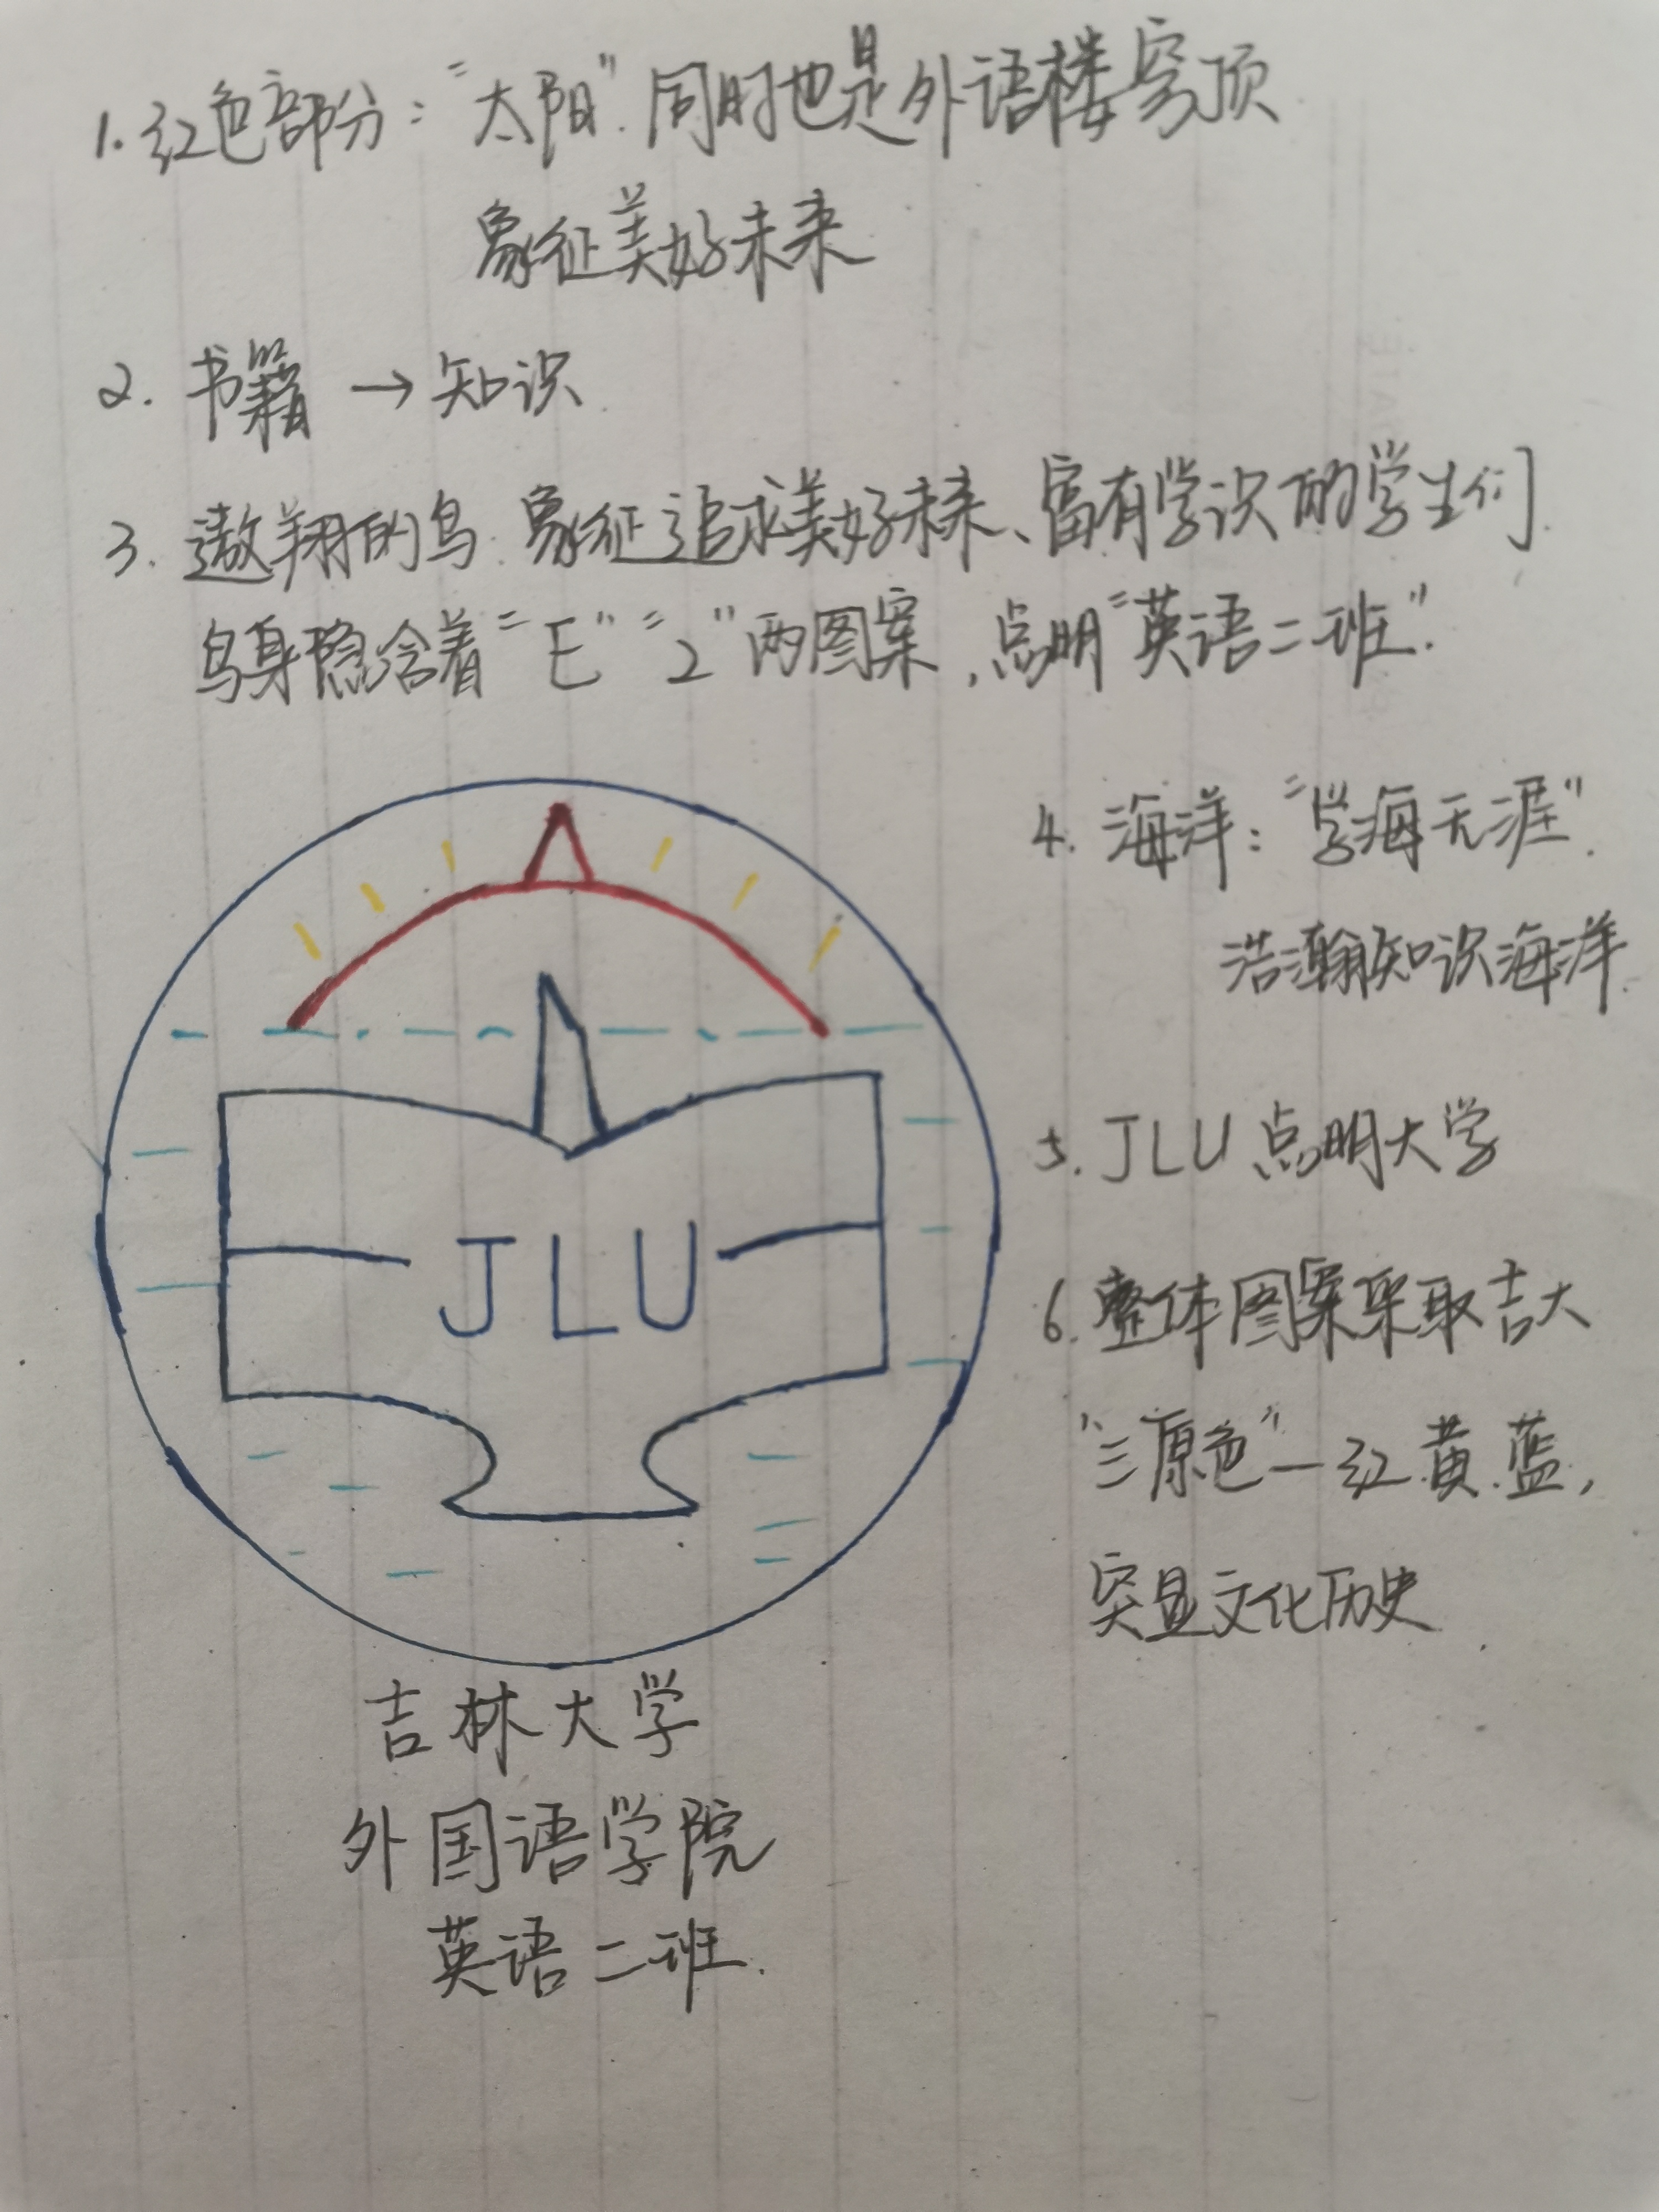 1. 红色部分：“太阳”.同时也是外语楼穹顶
象征美好未来
2. 书籍 → 知识.
3. 遨翔的鸟.象征追求美好未来、富有学识的学生们.
鸟身隐含着“E”“2”两图案,点明“英语二班”.
4. 海洋：“学海无涯”.
浩瀚知识海洋.
5. JLU 点明大学
6. 整体图案采取吉大
“三原色”—红.黄.蓝,
突显文化历史.
JLU
吉林大学
外国语学院
英语二班.